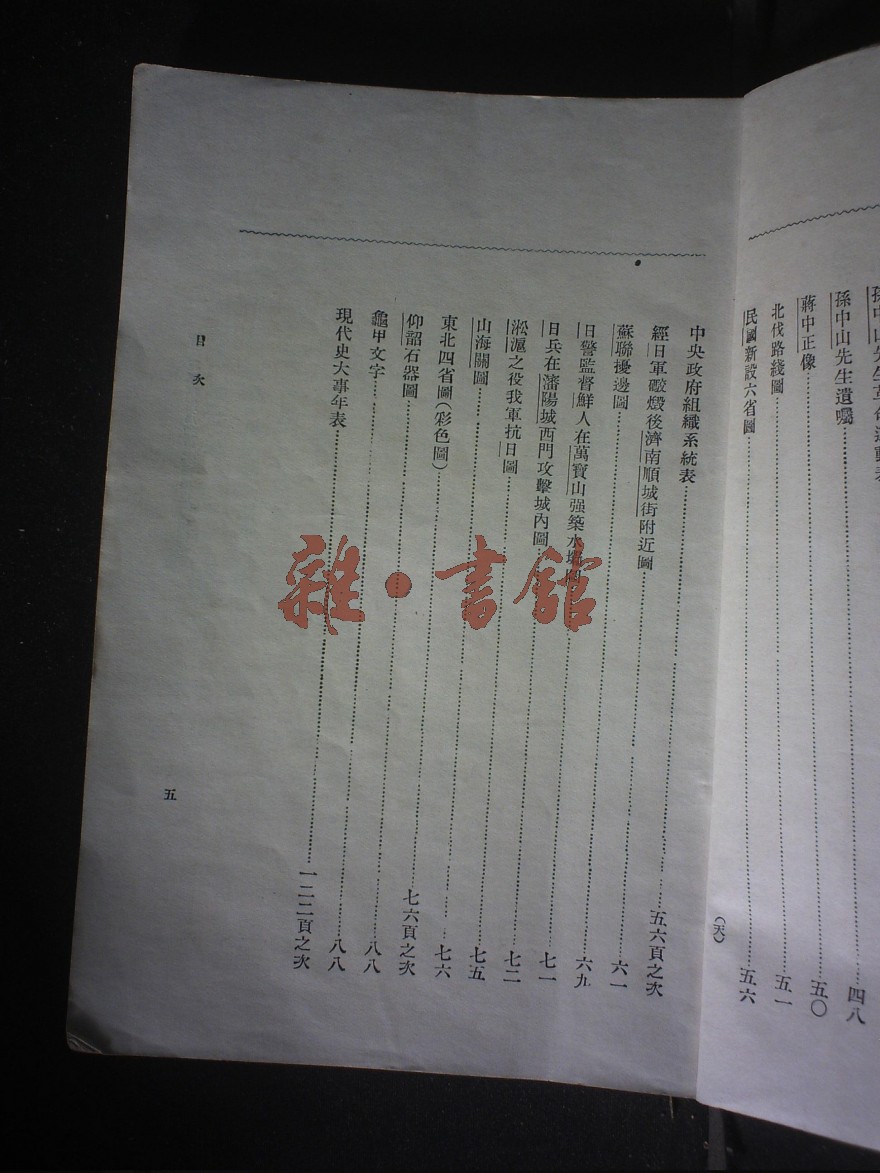 孫中山先生
孫中山先生遺囑……四八
蔣中正像……五〇
北伐路綫圖……五一
民國新設六省圖……五六
(天)
中央政府組織系統表……五六頁之次
經日軍礮燬後濟南順城街附近圖……六一
蘇聯擾邊圖……六九
日警監督鮮人在萬寶山强築水圖……七一
日兵在瀋陽城西門攻擊城內圖……七二
淞滬之役我軍抗日圖……七五
山海關圖……七六
東北四省圖(彩色圖)……七六頁之次
仰韶石器圖……八八
龜甲文字……八八
現代史大事年表……一二二頁之次
目次
五
雜·書館